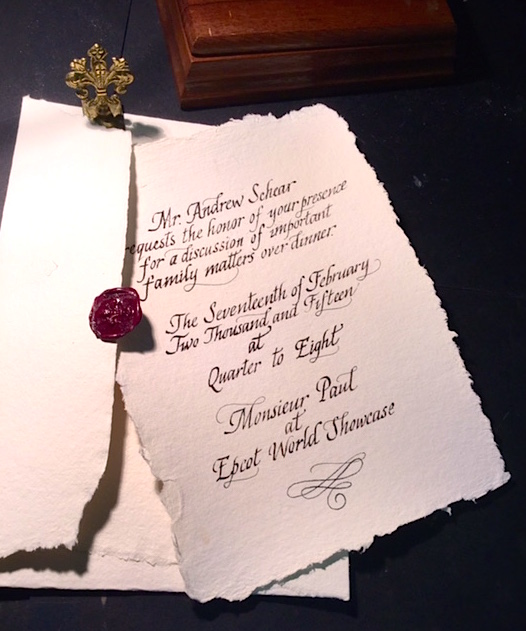 Mr. Andrew Schear
requests the honor of your presence
for a discussion of important
family matters over dinner.
The Seventeenth of February
Two Thousand and Fifteen
at
Quarter to Eight
Monsieur Paul
at
Epcot World Showcase